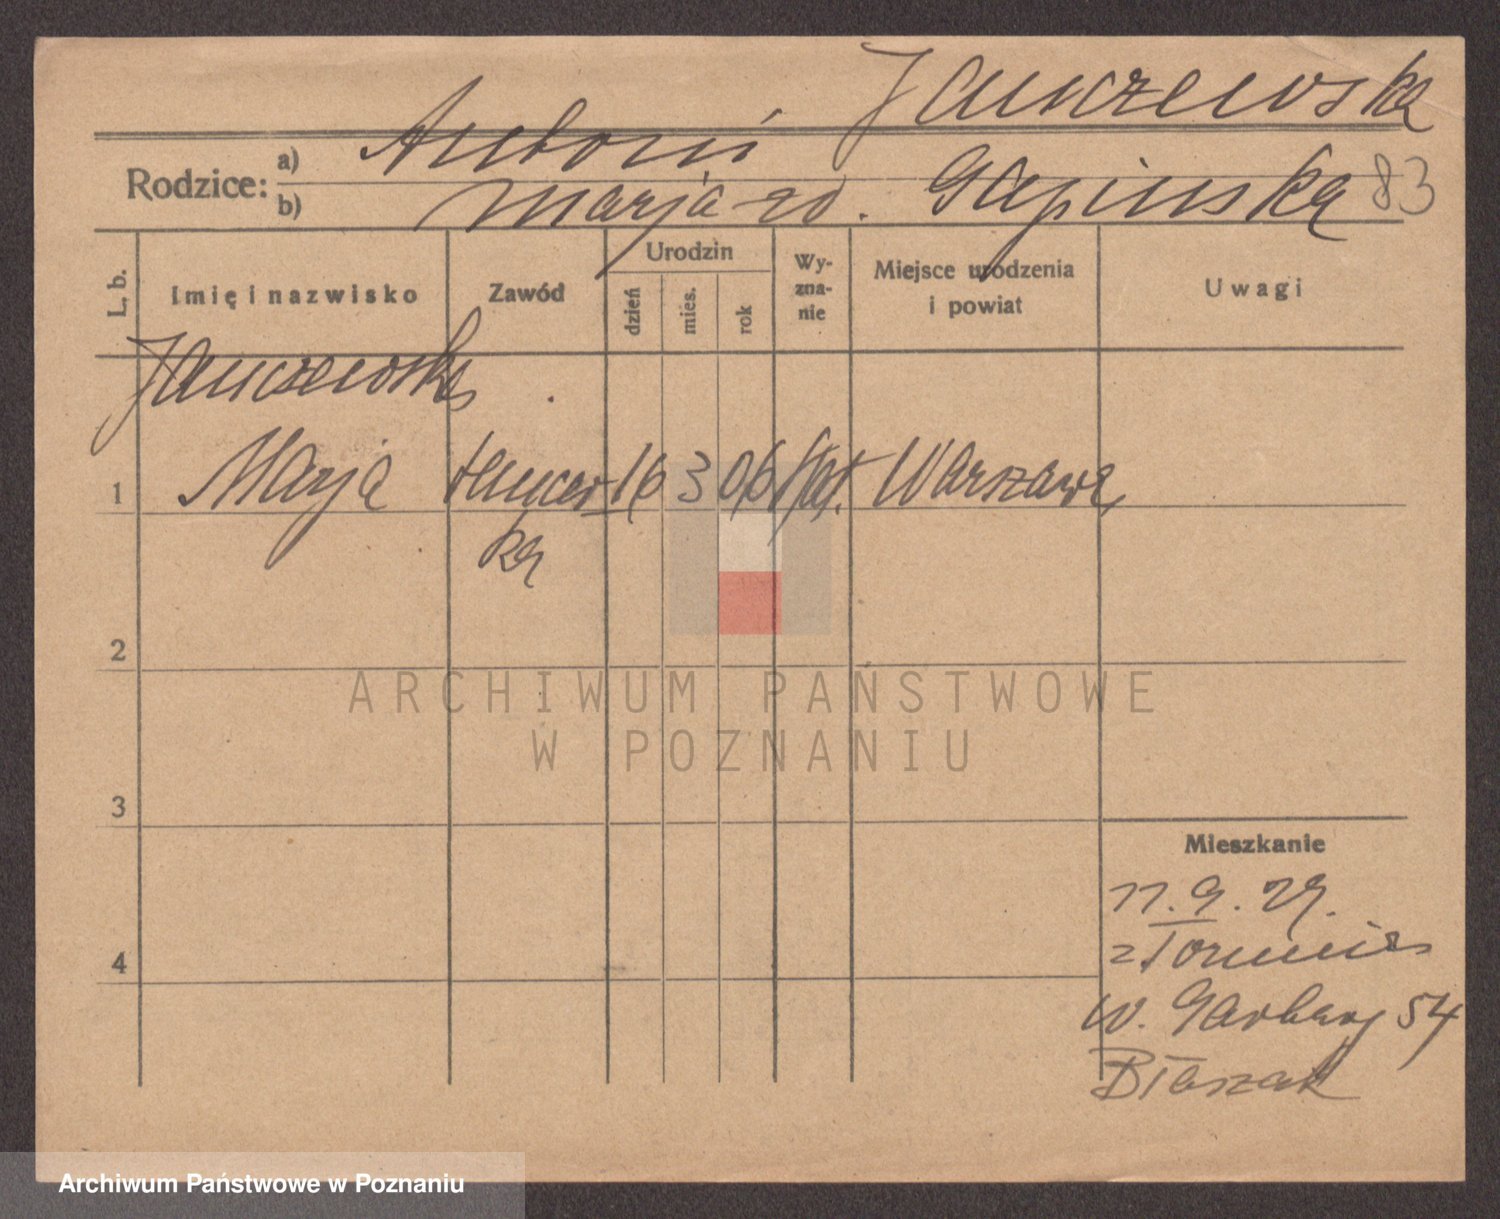 Janczewska
Rodzice: a) Antoni
b) Marja zd. Gapinska 83
L. b.
Imię i nazwisko
Zawód
Urodzin
dzień
mies.
rok
Wy-
zna-
nie
Miejsce urodzenia
i powiat
Uwagi
Janczewska
1 Marja tancer- 16 3 06 kat. Warszawa
ka
2
ARCHIWUM PAŃSTWOWE
W POZNANIU
3
Mieszkanie
11.9.29.
z Torunia
4
W. Garbary 54
Błaszak
Archiwum Państwowe w Poznaniu